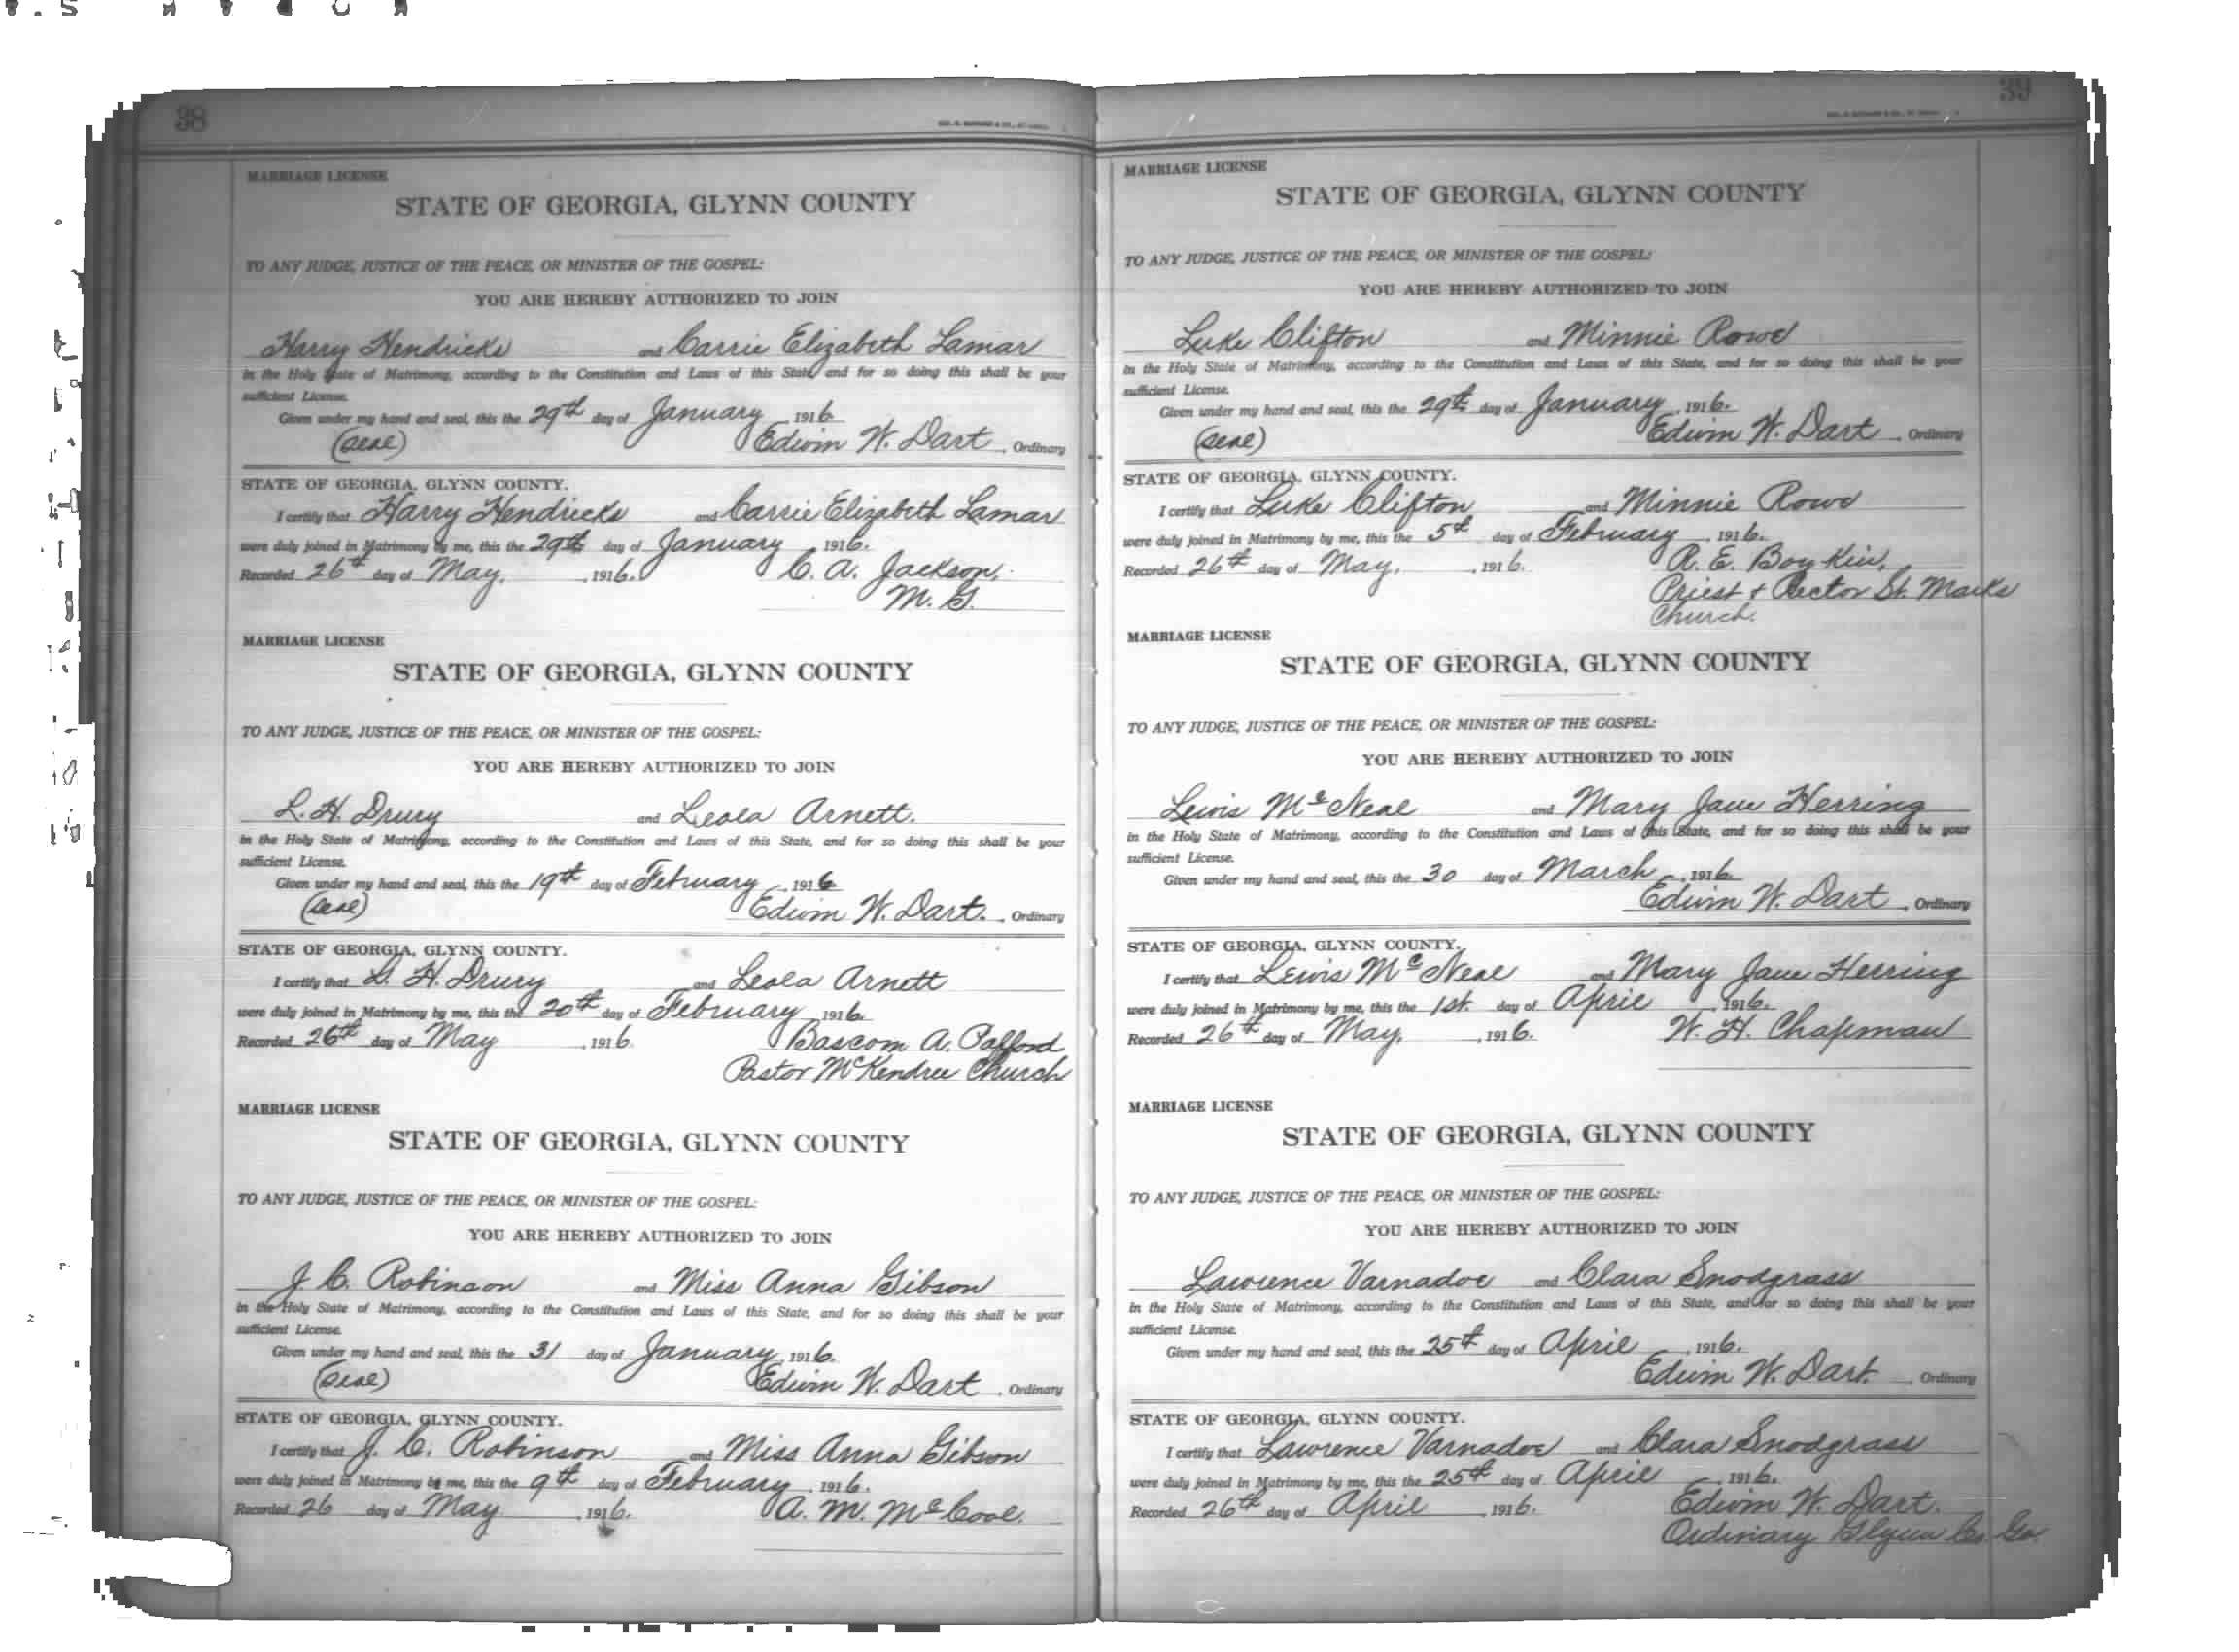 38
MARRIAGE LICENSE
STATE OF GEORGIA, GLYNN COUNTY
TO ANY JUDGE, JUSTICE OF THE PEACE, OR MINISTER OF THE GOSPEL:
YOU ARE HEREBY AUTHORIZED TO JOIN
Harry Hendricks and Carrie Elizabeth Lamar
in the Holy State of Matrimony, according to the Constitution and Laws of this State, and for so doing this shall be your
sufficient License.
Given under my hand and seal, this the 29th day of January, 1916.
(seal) Edwin W. Dart, Ordinary
STATE OF GEORGIA, GLYNN COUNTY.
I certify that Harry Hendricks and Carrie Elizabeth Lamar
were duly joined in Matrimony by me, this the 29th day of January, 1916.
Recorded 26th day of May, 1916. C. A. Jackson,
M. G.
MARRIAGE LICENSE
STATE OF GEORGIA, GLYNN COUNTY
TO ANY JUDGE, JUSTICE OF THE PEACE, OR MINISTER OF THE GOSPEL:
YOU ARE HEREBY AUTHORIZED TO JOIN
L. H. Drury and Leola Arnett.
in the Holy State of Matrimony, according to the Constitution and Laws of this State, and for so doing this shall be your
sufficient License.
Given under my hand and seal, this the 19th day of February, 1916
(seal) Edwin W. Dart., Ordinary
STATE OF GEORGIA, GLYNN COUNTY.
I certify that L. H. Drury and Leola Arnett
were duly joined in Matrimony by me, this the 20th day of February, 1916.
Recorded 26th day of May, 1916. Bascom A. Pafford
Pastor McKendree Church
MARRIAGE LICENSE
STATE OF GEORGIA, GLYNN COUNTY
TO ANY JUDGE, JUSTICE OF THE PEACE, OR MINISTER OF THE GOSPEL:
YOU ARE HEREBY AUTHORIZED TO JOIN
J. C. Robinson and Miss Anna Gibson
in the Holy State of Matrimony, according to the Constitution and Laws of this State, and for so doing this shall be your
sufficient License.
Given under my hand and seal, this the 31 day of January, 1916.
(seal) Edwin W. Dart, Ordinary
STATE OF GEORGIA, GLYNN COUNTY.
I certify that J. C. Robinson and Miss Anna Gibson
were duly joined in Matrimony by me, this the 9th day of February, 1916.
Recorded 26 day of May, 1916. A. M. McCool.
39
MARRIAGE LICENSE
STATE OF GEORGIA, GLYNN COUNTY
TO ANY JUDGE, JUSTICE OF THE PEACE, OR MINISTER OF THE GOSPEL:
YOU ARE HEREBY AUTHORIZED TO JOIN
Luke Clifton and Minnie Rowe
in the Holy State of Matrimony, according to the Constitution and Laws of this State, and for so doing this shall be your
sufficient License.
Given under my hand and seal, this the 29th day of January, 1916.
(seal) Edwin W. Dart, Ordinary
STATE OF GEORGIA, GLYNN COUNTY.
I certify that Luke Clifton and Minnie Rowe
were duly joined in Matrimony by me, this the 5th day of February, 1916.
Recorded 26th day of May, 1916. R. E. Boykin,
Priest + Rector St. Marks
Church.
MARRIAGE LICENSE
STATE OF GEORGIA, GLYNN COUNTY
TO ANY JUDGE, JUSTICE OF THE PEACE, OR MINISTER OF THE GOSPEL:
YOU ARE HEREBY AUTHORIZED TO JOIN
Lewis McNeal and Mary Jane Herring
in the Holy State of Matrimony, according to the Constitution and Laws of this State, and for so doing this shall be your
sufficient License.
Given under my hand and seal, this the 30 day of March, 1916.
Edwin W. Dart, Ordinary
STATE OF GEORGIA, GLYNN COUNTY.
I certify that Lewis McNeal and Mary Jane Herring
were duly joined in Matrimony by me, this the 1st. day of April, 1916.
Recorded 26th day of May, 1916. W. H. Chapman
MARRIAGE LICENSE
STATE OF GEORGIA, GLYNN COUNTY
TO ANY JUDGE, JUSTICE OF THE PEACE, OR MINISTER OF THE GOSPEL:
YOU ARE HEREBY AUTHORIZED TO JOIN
Lawrence Varnadoe and Clara Snodgrass
in the Holy State of Matrimony, according to the Constitution and Laws of this State, and for so doing this shall be your
sufficient License.
Given under my hand and seal, this the 25th day of April, 1916.
Edwin W. Dart., Ordinary
STATE OF GEORGIA, GLYNN COUNTY.
I certify that Lawrence Varnadoe and Clara Snodgrass
were duly joined in Matrimony by me, this the 25th day of April, 1916.
Recorded 26th day of April, 1916. Edwin W. Dart.
Ordinary Glynn Co. Ga.